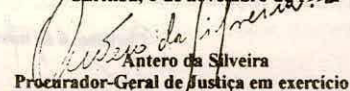 Antero da Silveira
Antero da Silveira
Procurador-Geral de Justiça em exercício